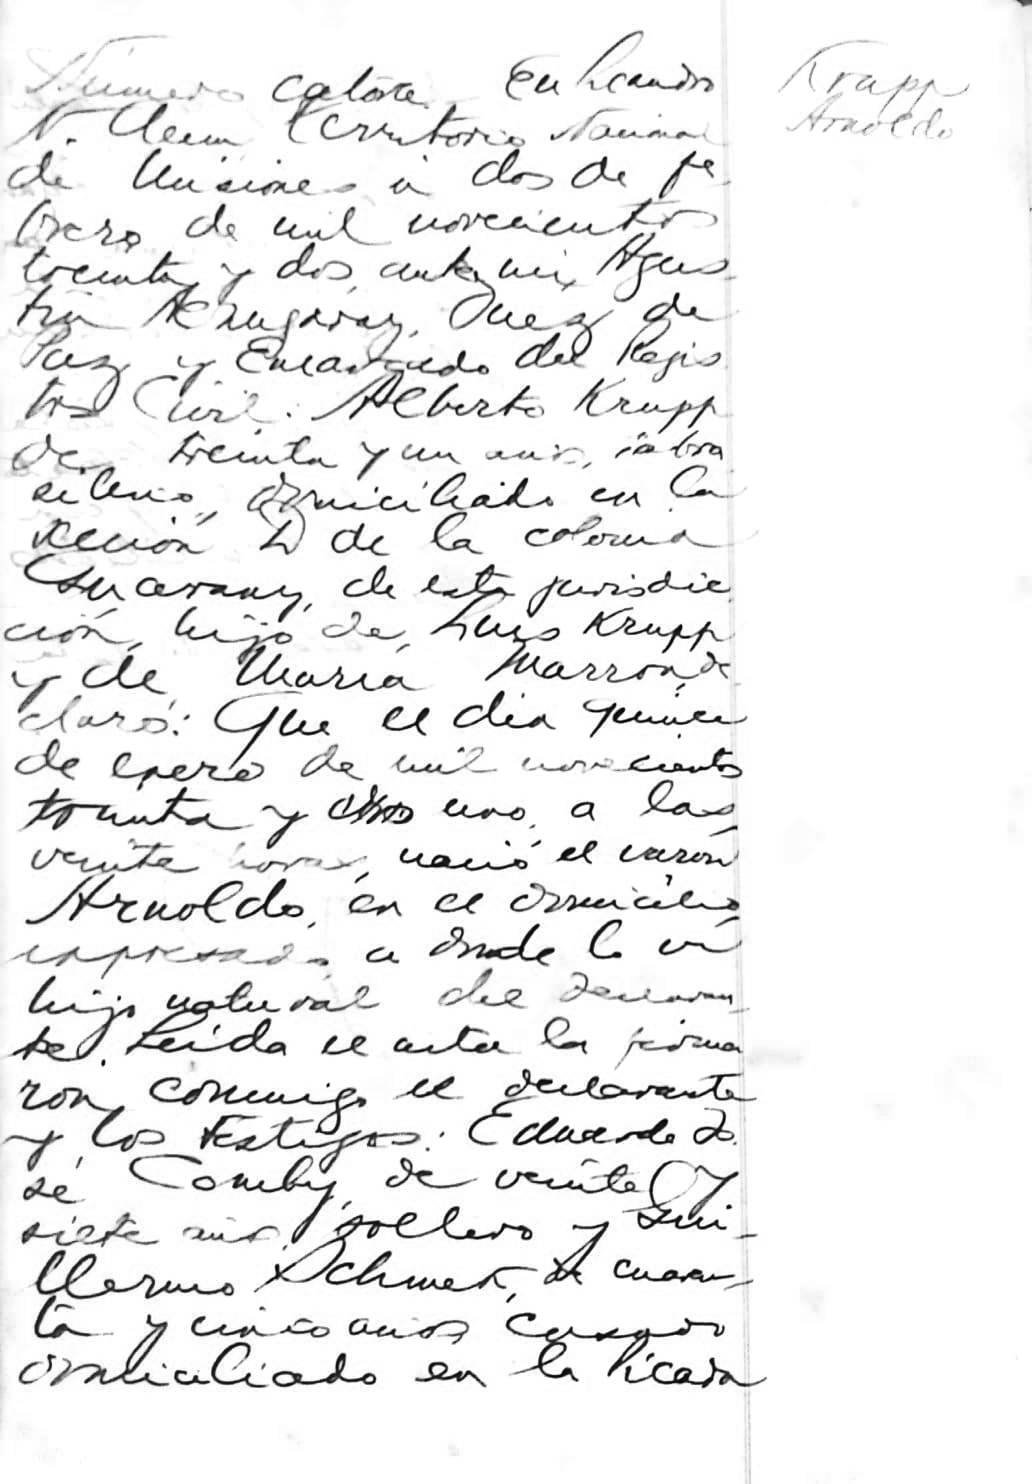 Número catorce. En Leandro
N. Alem Territorio Nacional
de Misiones a dos de fe-
brero de mil novecientos
treinta y dos, ante mi, Agus-
tin Juez de
Paz y Encargado del Regis
tro Civil: Alberto Krupp
de treinta y un años, brá
sileño, domiciliado en la
sección D de la colonia
Guarany, de esta jurisdic
ción, hijo de Luis Krupp
y de Maria Marron, de
claró: Que el dia quince
de enero de mil novecientos
treinta y uno, a las
veinte horas, nació el varon
Arnoldo, en el domicilio
expresado a donde lo vi
hijo natural del declaran-
te. Leida el acta la firma
ron conmigo el declarante
y los testigos: Eduardo Jo
sé Comby, de veinte y
siete años, soltero y Gui-
llermo de cuaren-
ta y cinco años casado
domiciliado en la Picada
Krupp
Arnoldo